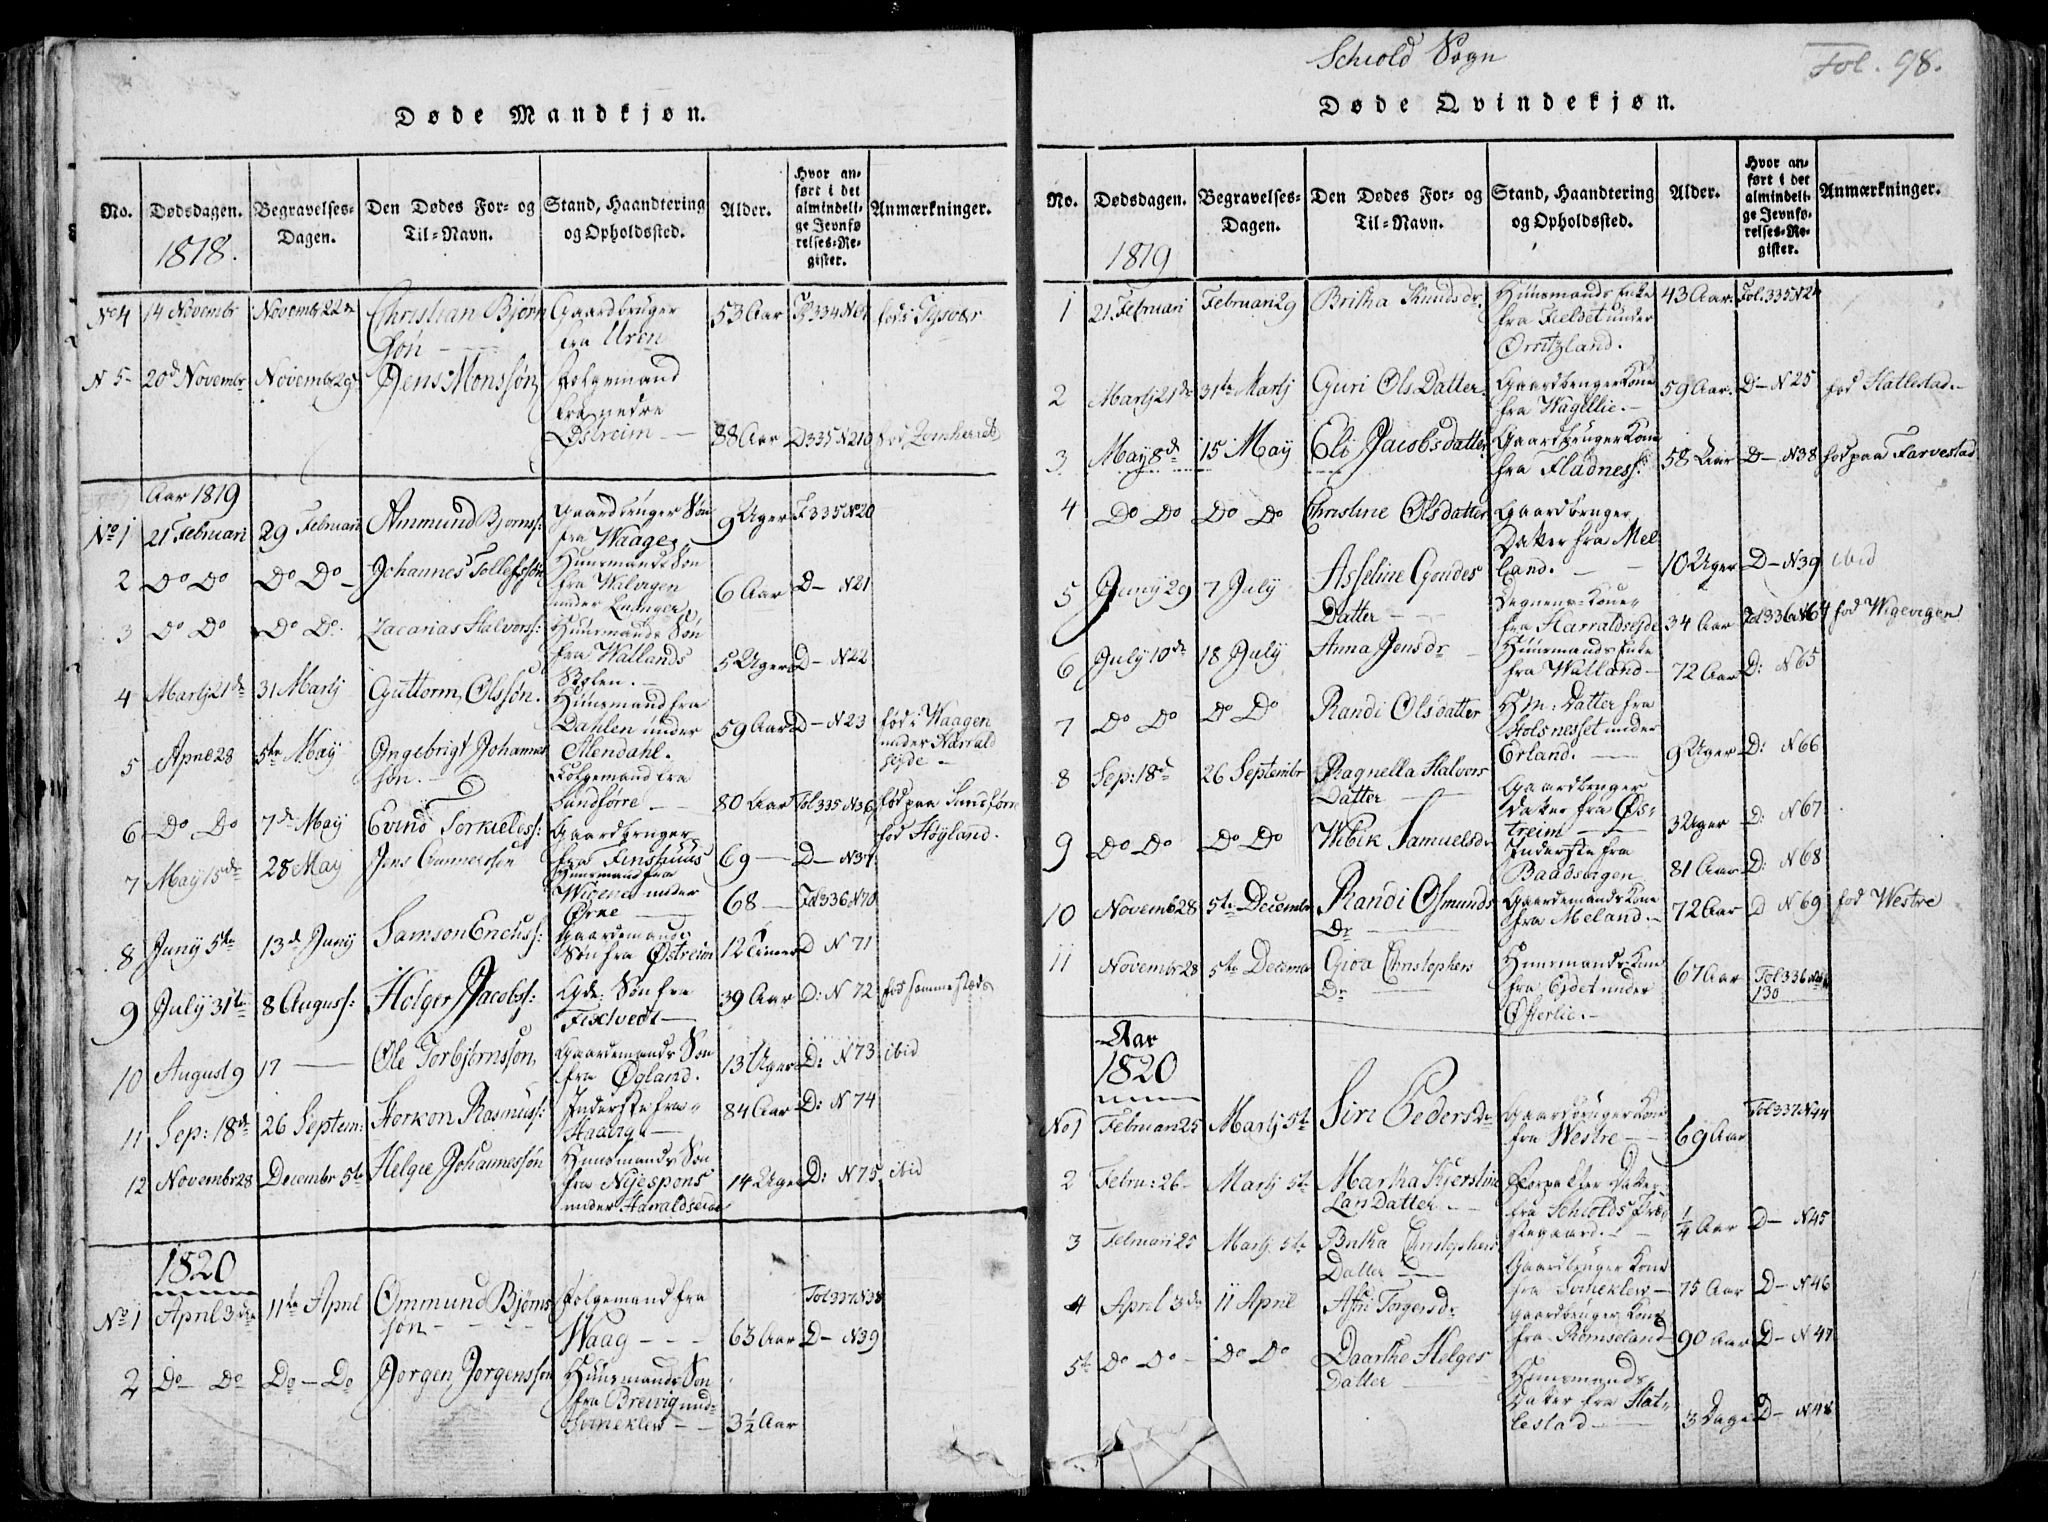 Schiold Sogn
Fol. 98.
Døde Mandkjøn.
No. Dødsdagen. Begravelses-Dagen. Den Dødes For- og Til-Navn. Stand, Haandtering og Opholdssted. Alder. Hvor anført i det almindelige Jevnførelses-Register. Anmærkninger.
1818.
No 4 14 Novembr Novembr 22de Christian Bjørn Gaardbruger 53 Aar No 4 fød i Tysvær
søn fra Uren
N 5 20d Novembr Novembr 29 Jens Monssøn Folgemand
fra nedre
Østreim 88 Aar D 335 N 219
Aar 1819
No 1 21 Februari 29 Februari Ammund Bjørns: Gaardbruger Søn 9 Uger F 335 No 20
fra Waage
2 Do Do Do Do Johannes Tollefssøn Huusmands Søn
fra
under 6 Aar D N 21
3 Do Do Do Do Zacarias Halvors: Huusmands Søn
fra Watlands 5 Uger D N 22
Stølen.
4 Martj 21de 31 Martj Guttorm Olssøn. Huusmand fra
Dahlen under 59 Aar D N 23 fød i Waagen
Stendahl. under Harrald
sejde
5 April 28 5te Maij Ingebrigt Johannes Folgemand fra
søn. Sandførre 80 Aar Fol 335 N 36 fød paa
6 Do Do 7de Maij Evind Torkields: Gaardbruger fød Høyland.
fra Finshuus 69 D N 37
7 Maij 15de 28 Maij Jens Gunnerssøn Huusmand fra
under
Ørne 68 Fol 336 N 70
8 Junij 5te 13de Junij Samson Erichs: Gaardemands
Søn fra Østreim 12 Timer D N 71
9 July 31te 8 August: Holger Jacobs: Gde: Søn fra 39 Aar D: N 72 fød samme steds
10 August 9 17 Ole Torbjørnssøn, Gaardemands Søn 13 Uger D: N 73 ibid
fra Øgland.
11 Sep: 18de 26 Septem: Storkon Rasmus: Inderste fra 84 Aar D: N 74
12 Novembr 28 Decembr 5te Helgie Johannessøn Huusmands Søn
fra Nijespons 14 Uger D: N 75 ibid
under Harraldseide
1820
No 1 April 3die 11te April Ommund Bjørns Folgemand fra Fol 337 N 38
søn Waag 63 Aar D N 39
2 Do Do Do Do Jørgen Jørgenssøn Huusmands Søn
fra Brewig und:
Svineklev 3½ Aar
Døde Qvindekjøn.
No. Dødsdagen. Begravelses-Dagen. Den Dødes For- og Til-Navn. Stand, Haandtering og Opholdssted. Alder. Hvor anført i det almindelige Jevnførelses-Register. Anmærkninger.
1819
1 21 Februari Februari 29 Britha Knudsdr. Huusmands Enke 43 Aar. Fol. 335 N 24
fra Fieldet under
Ørritzland.
2 Martj 21de 31te Martj Guri Ols Datter Gaardbruger Kone 59 Aar. D N 25 fød Hatlestad.
fra Wagllie.
3 Maij 8de 15 Maij Eli Jacobsdatter Gaardbruger Kone 58 Aar D N 38 fød paa Farvestad
fra Fladness:
4 Do Do Do Do Christine Olsdatter Gaardbruger
Datter fra Mel
land. 10 Uger D N 39 ibid
5 Junij 29 7 July Asseline Goudes Degnens Kone
Datter fra Harraldsejde 34 Aar Fol 336 N 64 fød Wigevigen
6 July 10de 18 July Anna Jensdr Huusmands Enke
fra Watland 72 Aar D: N 65
7 Do Do Do Do Randi Olsdatter Hm: Datter fra
Holsnesset under
Erland. 9 Uger D: N 66
8 Sep: 18d 26 Septembr Ragnella Halvors Gaardbruger
Datter Datter fra Øs-
treim 3 Uger D: N 67
9 Do Do Do Do Wibik Samuelsdr Inderste fra
Baadsvigen 81 Aar D: N 68
10 Novemb 28 5te Decembr Randi Osmunds Gaardemands Kone 72 Aar D N 69 fød Westre
Dr fra Meland.
11 Novembr 28 5te Decembr Gioa Christophers Huusmands Kone 67 Aar Fol 336
Dr fra Eydet under 130
Østerlie.
Aar
1820
No 1 Februari 25 Martj 5te Siri Pedersdr Gaardbruger Kone Fol 337 N 44
fra Westre 69 Aar
2 Febru: 26 Martj 5te Martha Kjerstine Datter
Lars Datter fra Schiolds Præ
stegaard. ¼ Aar D N 45
3 Februari 25 Martj 5te Britha Christophers Gaardbruger Kone
Datter fra Svineklev 75 Aar D N 46
4 April 3die 11 April Torgersdr Gaardbruger Kone
fra Romseland 90 Aar D N 47
5te Do Do Do Do Daarthe Helges Huusmands
Datter Datter fra Hat-
lestad 3 Dage D N 48